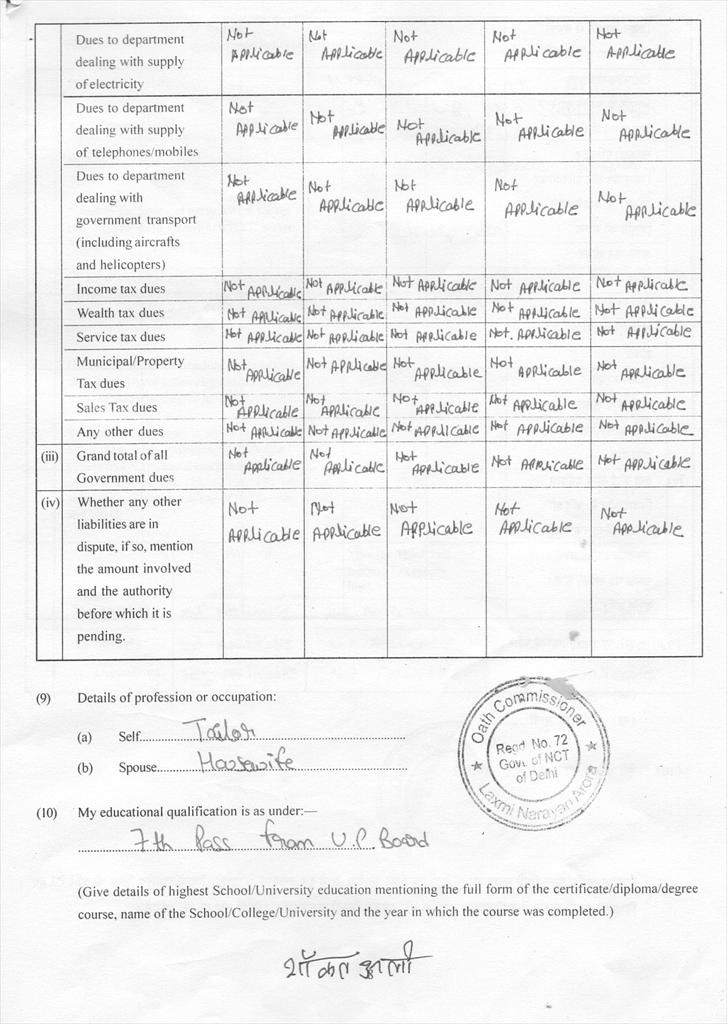 Dues to department Not Not Not Not Not
dealing with supply Applicable Applicable Applicable Applicable Applicable
of electricity
Dues to department Not Not Not Not Not
dealing with supply Applicable Applicable Applicable Applicable Applicable
of telephones/mobiles
Dues to department Not Not Not Not Not
dealing with Applicable Applicable Applicable Applicable Applicable
government transport
(including aircrafts
and helicopters)
Income tax dues Not Applicable Not Applicable Not Applicable Not Applicable Not Applicable
Wealth tax dues Not Applicable Not Applicable Not Applicable Not Applicable Not Applicable
Service tax dues Not Applicable Not Applicable Not Applicable Not. Applicable Not Applicable
Municipal/Property Not Not Applicable Not Not Not
Tax dues Applicable Applicable Applicable Applicable
Sales Tax dues Not Applicable Not Applicable Not Applicable Not Applicable Not Applicable
Any other dues Not Applicable Not Applicable Not Applicable Not Applicable Not Applicable
(iii) Grand total of all Not Not Not Not Applicable Not Applicable
Government dues Applicable Applicable Applicable
(iv) Whether any other Not Not Not Not Not
liabilities are in Applicable Applicable Applicable Applicable Applicable
dispute, if so, mention
the amount involved
and the authority
before which it is
pending.
(9) Details of profession or occupation:
(a) Self Tailor
(b) Spouse Housewife
Oath Commissioner
Regd No. 72
Govt. of NCT
of Delhi
Laxmi Narayan Arora
(10) My educational qualification is as under:—
7th Pass from U.P. Board
(Give details of highest School/University education mentioning the full form of the certificate/diploma/degree
course, name of the School/College/University and the year in which the course was completed.)
शौकत अली